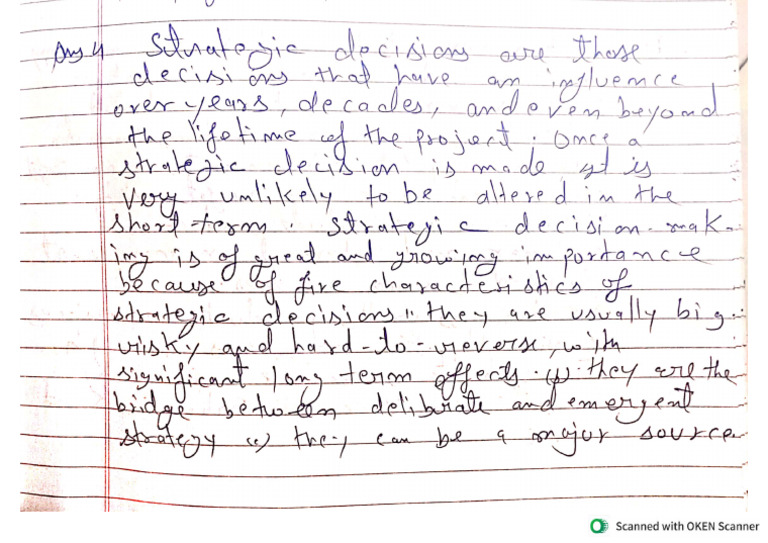 Ans 4 Strategic decisions are those
decisions that have an influence
over years, decades, and even beyond
the lifetime of the project. Once a
strategic decision is made it is
very unlikely to be altered in the
short-term. strategic decision-mak-
ing is of great and growing importance
because of five characteristics of
strategic decisions" they are usually big.
risky and hard-to-reverse, with
significant long term effects. they are the
bridge between deliberate and emergent
strategy they can be a major source
Scanned with OKEN Scanner